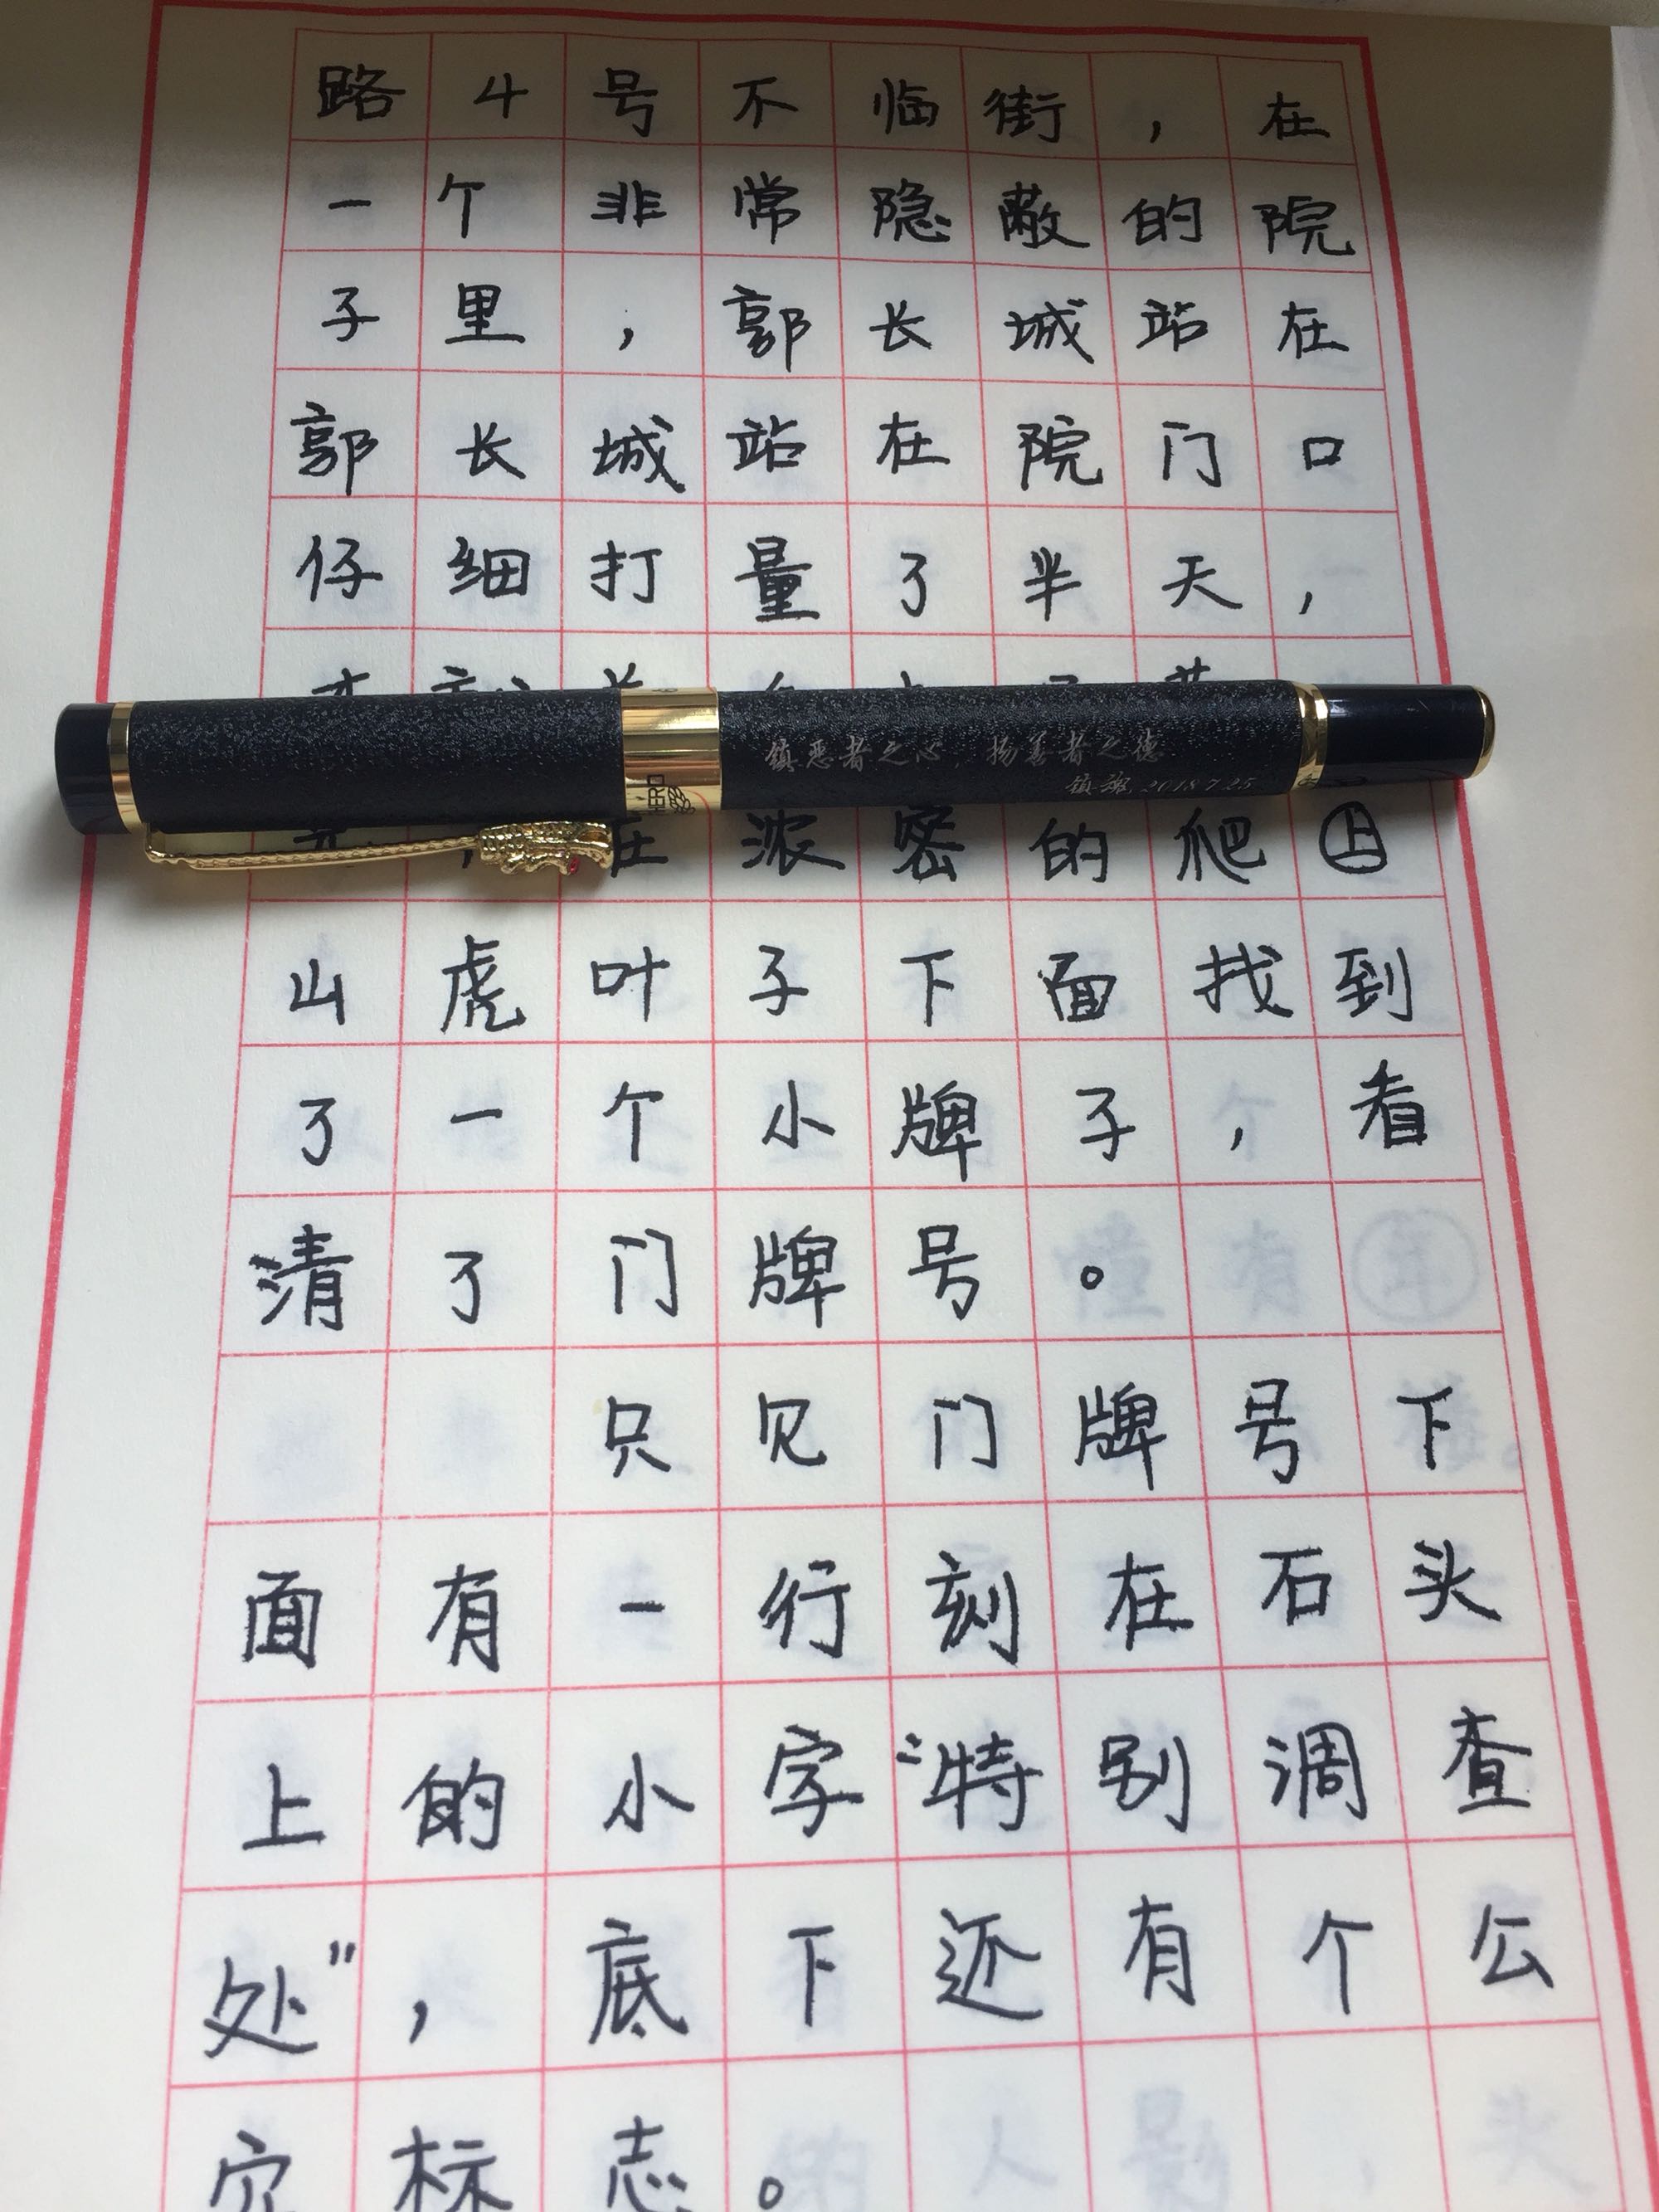 路4号不临街，在
一个非常隐蔽的院
子里，郭长城站在
郭长城站在院门口
仔细打量了半天，
镇恶者之心，扬善者之德
镇魂,2018.7.25
HERO
在浓密的爬上
山虎叶子下面找到
了一个小牌子，看
清了门牌号。
只见门牌号下
面有一行刻在石头
上的小字“特别调查
处”，底下还有个公
安标志。